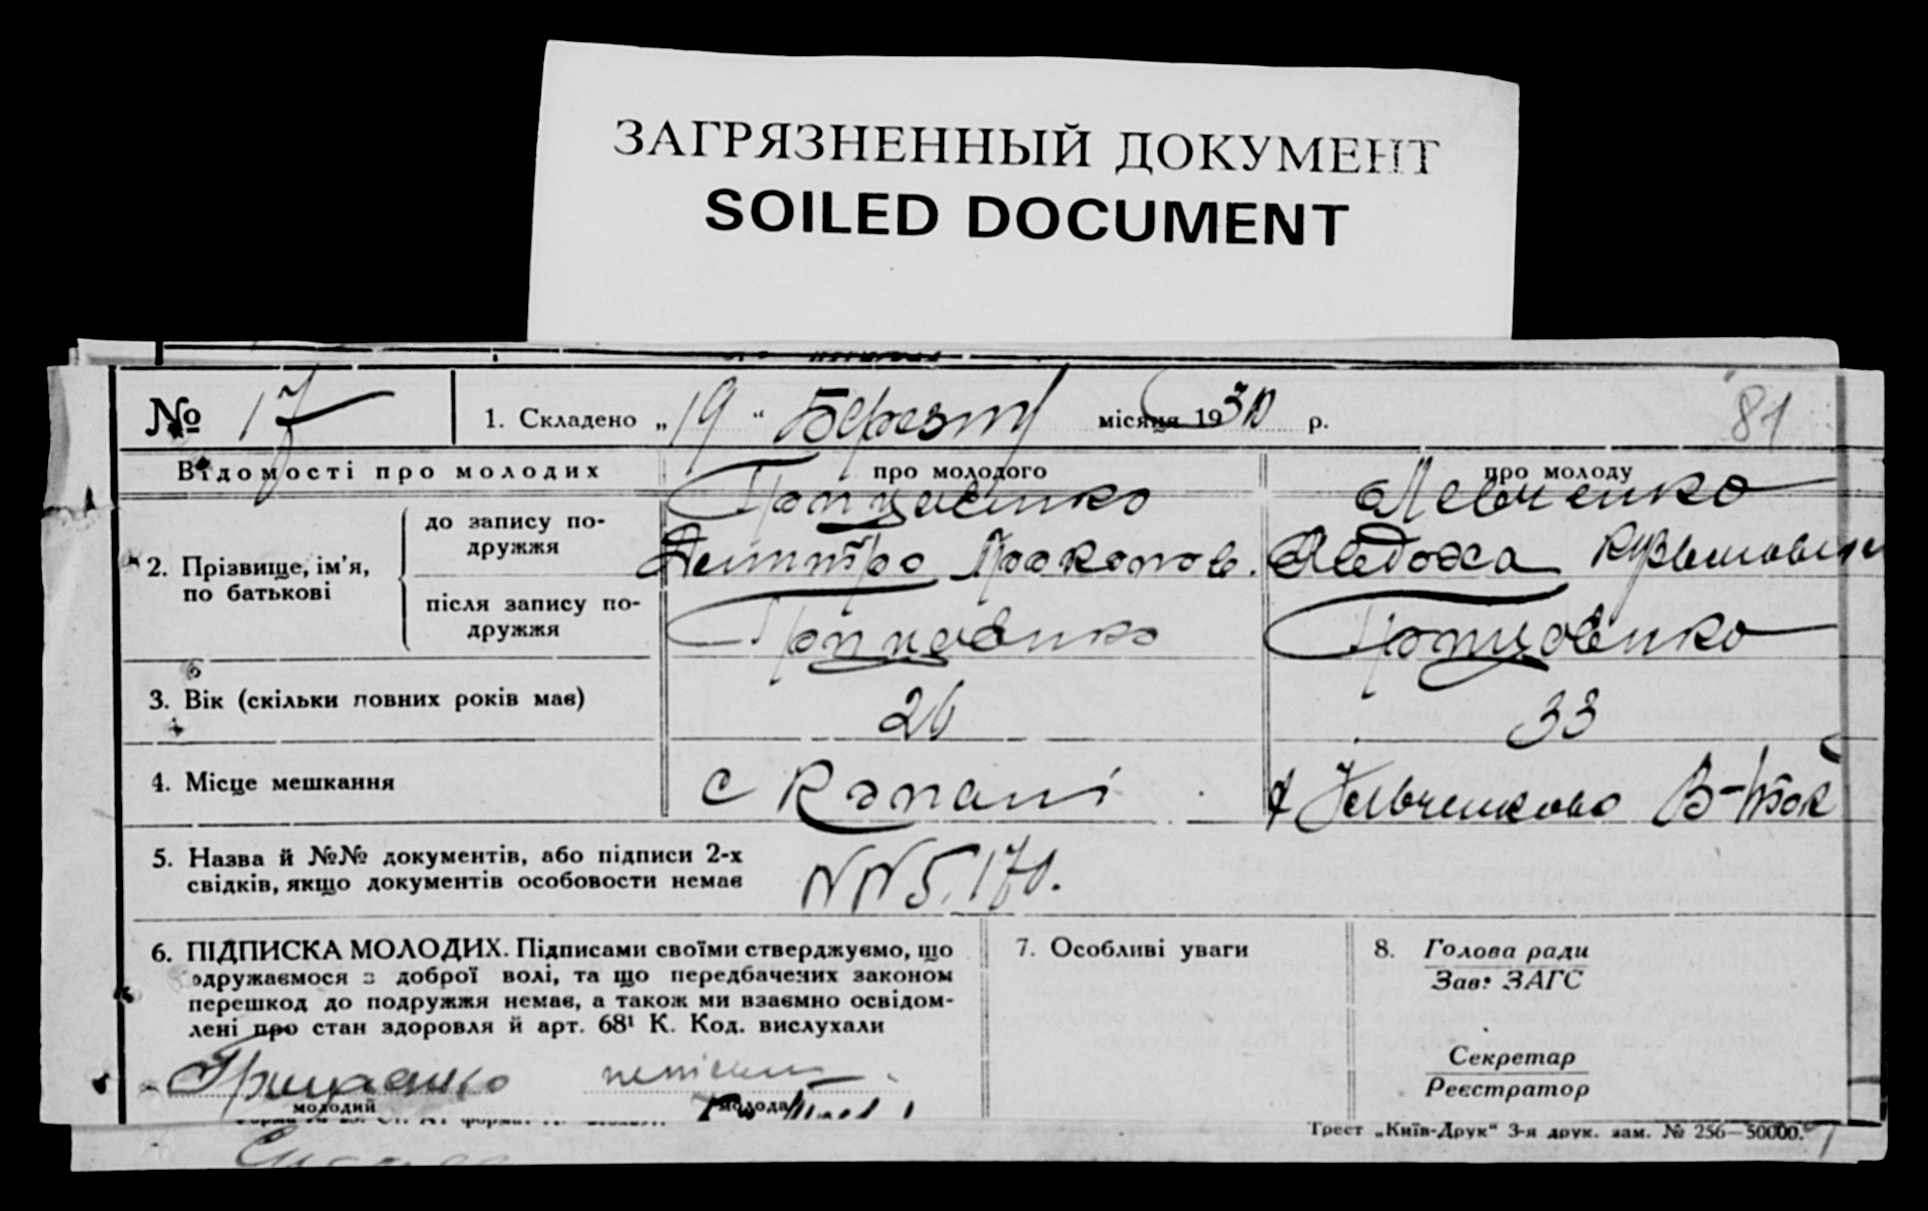 ЗАГРЯЗНЕННЫЙ ДОКУМЕНТ
SOILED DOCUMENT
№ 17
1. Складено „19“ Березня місяця 1930 р.
81
Відомості про молодих
про молодого
про молоду
2. Прізвище, ім’я, по батькові
до запису подружжя
Левченко
Дмитро Прокопов.
Явдоха
після запису подружжя
3. Вік (скільки повних років має)
26
33
4. Місце мешкання
с Капані
5. Назва й №№ документів, або підписи 2-х
свідків, якщо документів особовости немає
NN 5, 170.
6. ПІДПИСКА МОЛОДИХ. Підписами своїми стверджуємо, що
одружаємося з доброї волі, та що передбачених законом
перешкод до подружжя немає, а також ми взаємно освідом-
лені про стан здоровля й арт. 68¹ К. Код. вислухали
молодий
молода
7. Особливі уваги
8. Голова ради
Зав. ЗАГС
Секретар
Реєстратор
Трест „Київ-Друк“ 3-я друк. зам. № 256—50000.